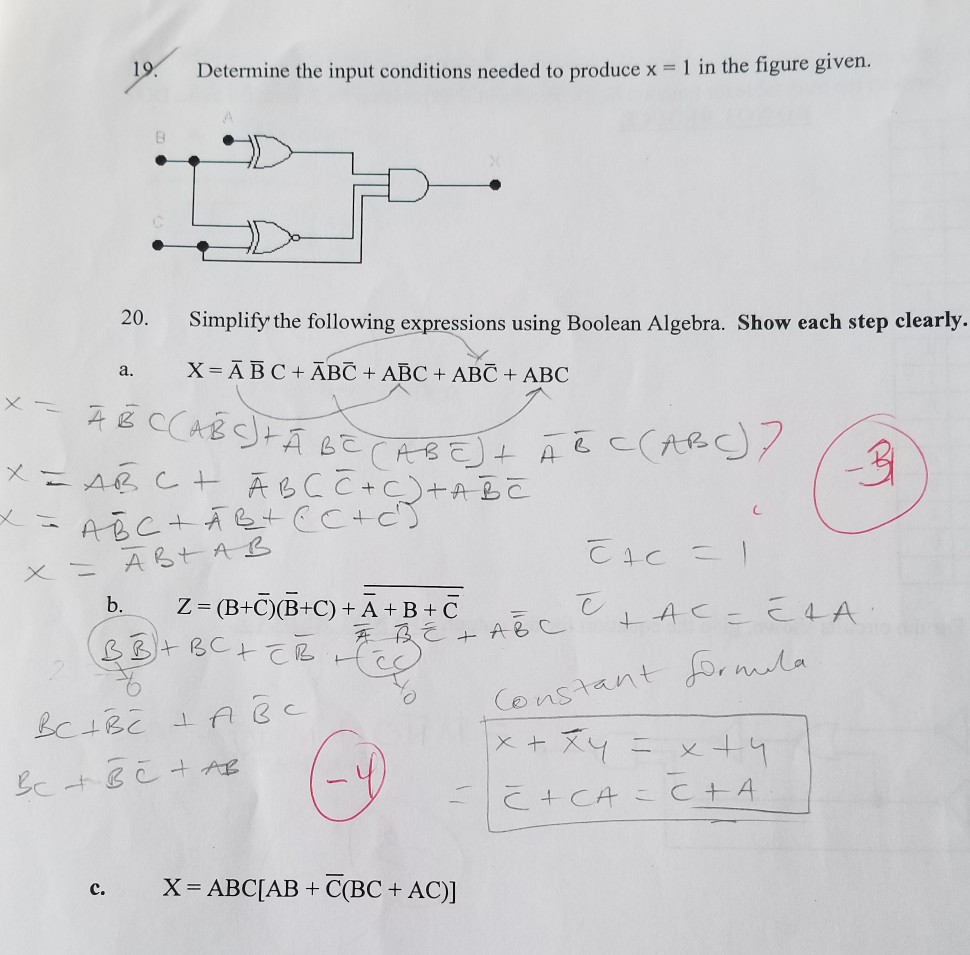 19. Determine the input conditions needed to produce x = 1 in the figure given.
A
B
X
C
20. Simplify the following expressions using Boolean Algebra. Show each step clearly.
a. X = A̅ B̅ C + A̅BC̅ + AB̅C + ABC̅ + ABC
x = A̅ B̅ C(AB̅C) + A̅ BC̅ (ABC̅) + A̅ B̅ C(ABC) ?
-3
x = AB̅ C + A̅B(C̅+C) + AB̅C̅
x = AB̅C + A̅B + (C+C')
C̅+C = 1
x = A̅B + AB
b. Z = (B+C̅)(B̅+C) + \overline{A̅ + B + C̅}
C̅ + AC = C̅ + A
BB̅ + BC + C̅B̅ + C̅C A̿ B̅ C̿ + AB̅C
0 0
Constant formula
BC + B̅C̅ + AB̅C
x + x̅y = x + y
BC + B̅C̅ + AB
-4
= C̅ + CA = C̅ + A
c. X = ABC[AB + C̅(BC + AC)]